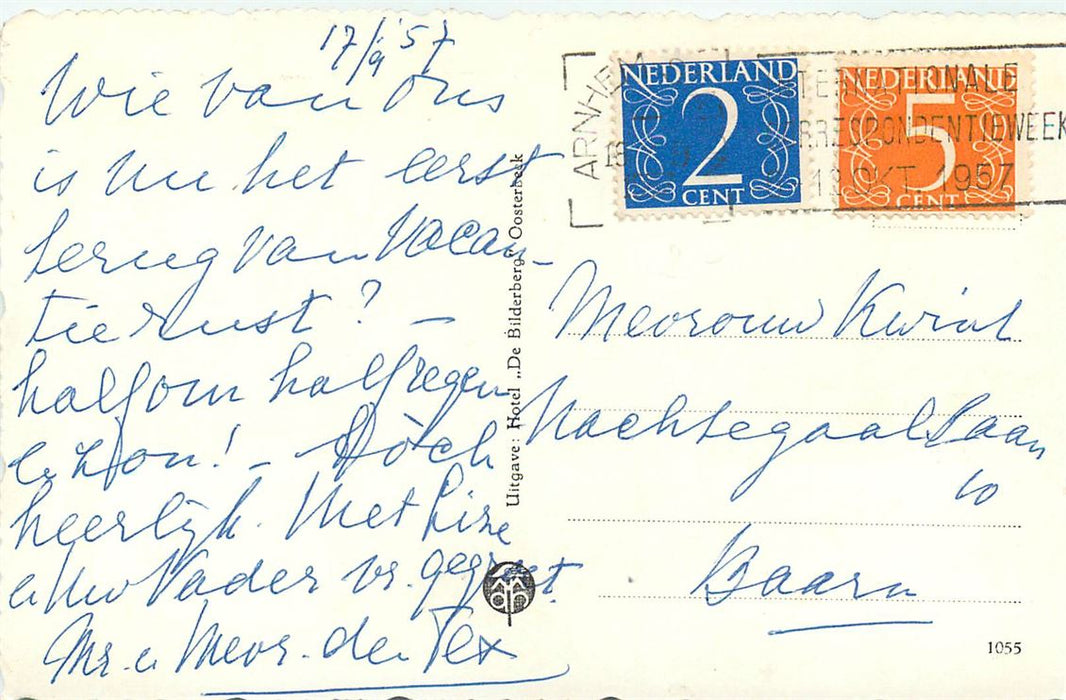 17/9 '57
Wie van ons
is nu het eerst
terug van Vacan-
tie rust? -
half om half regen
e zon! - Tòch
heerlijk. Met Lize
e Uw Vader vr. gegroet.
Mr. e Mevr. den Tex
Uitgave: Hotel „De Bilderberg" Oosterbeek
ARNHEM
NEDERLAND
2
CENT
NEDERLAND
5
CENT
INTERNATIONALE
CORRESPONDENTIEWEEK
13 OKT. 1957
Mevrouw Kwint
Nachtegaallaan
10
Baarn
1055